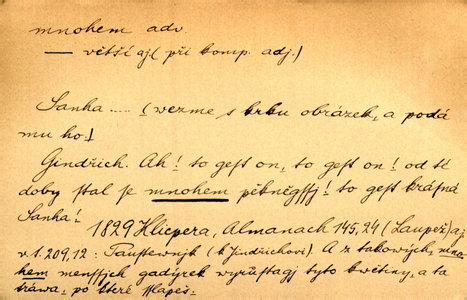 mnohem adv.
— větší aj. (při komp. adj.)
Sanka .... (wezme s krku obrázek, a podá
mu ho.)
Gindřich. Ah! to gest on, to gest on! od té
doby stal se mnohem pěkněgssj! to gest krásná
Sanka!
1829 Klicpera, Almanach 145,24 (Laupež) aj.
v. 1. 209,12: Paustewnjk (k Jindřichovi). A z takowých, mno-
hem menssjch gadýrek wyrůstagj tyto kwětiny, a ta
tráwa, po které sslapeš.